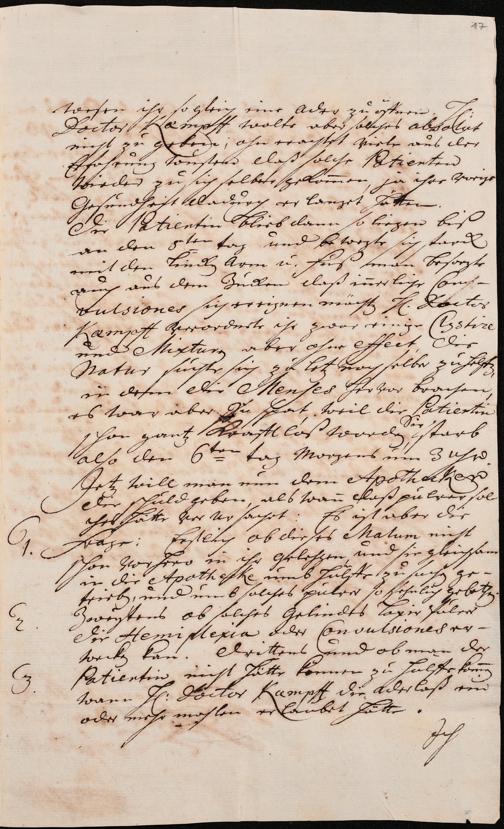 17
wesen ihr sogleich eine ader zu öffnen. H.
Doctor Kampff wolte aber solches absolut
nicht zu geben, ohn erachtet viele aus der
Erfahrung daß solche Patienten
wieder zu sich selber gekommen ja ihre vorige
Gesundheit dadurch erlanget hätten.
Die Patientin blieb dann so liegen biß
an den 5ten tag und bewegte sich starck
mit dem lincken Arm u. fuß, man besorgte
auch aus dem Zucken daß innerliche Con-
vulsiones sich ereignen möchten H. Doctor
Kampff verordnete ihr zwar einige Clystire
und Mixturen aber ohne effect, die
Natur suchte sich zu letzt noch selbst zu helffen
in dem die Menses hervor brachen,
es war aber zu spat weil die Patientin
schon gantz krafftloß worden Sie starb
also den 6ten tag Morgens um 3 uhr
Jetz will man nun dem Apothecker
die schuld geben, als wann daß pulver sol-
ches hätte verursachet: Es ist aber die
1. frage: Erstlich ob dieses Malum nicht
schon vorhero in ihr gelegen, und sie gleichsam
in die Apothecke umb hülffe zu suchen ge-
trieben, und umb solches pulver so gebetten
2. Zweytens ob solches gelindes laxir pulver
die Hemiplexia oder Convulsiones er-
wecken kan. Drittens und ob man der
3. Patientin nicht hätte können zu hülffe kommen
wann H. Doctor Kampff die aderlaß ein
oder mehr mahlen erlaubet hätte.
Ich